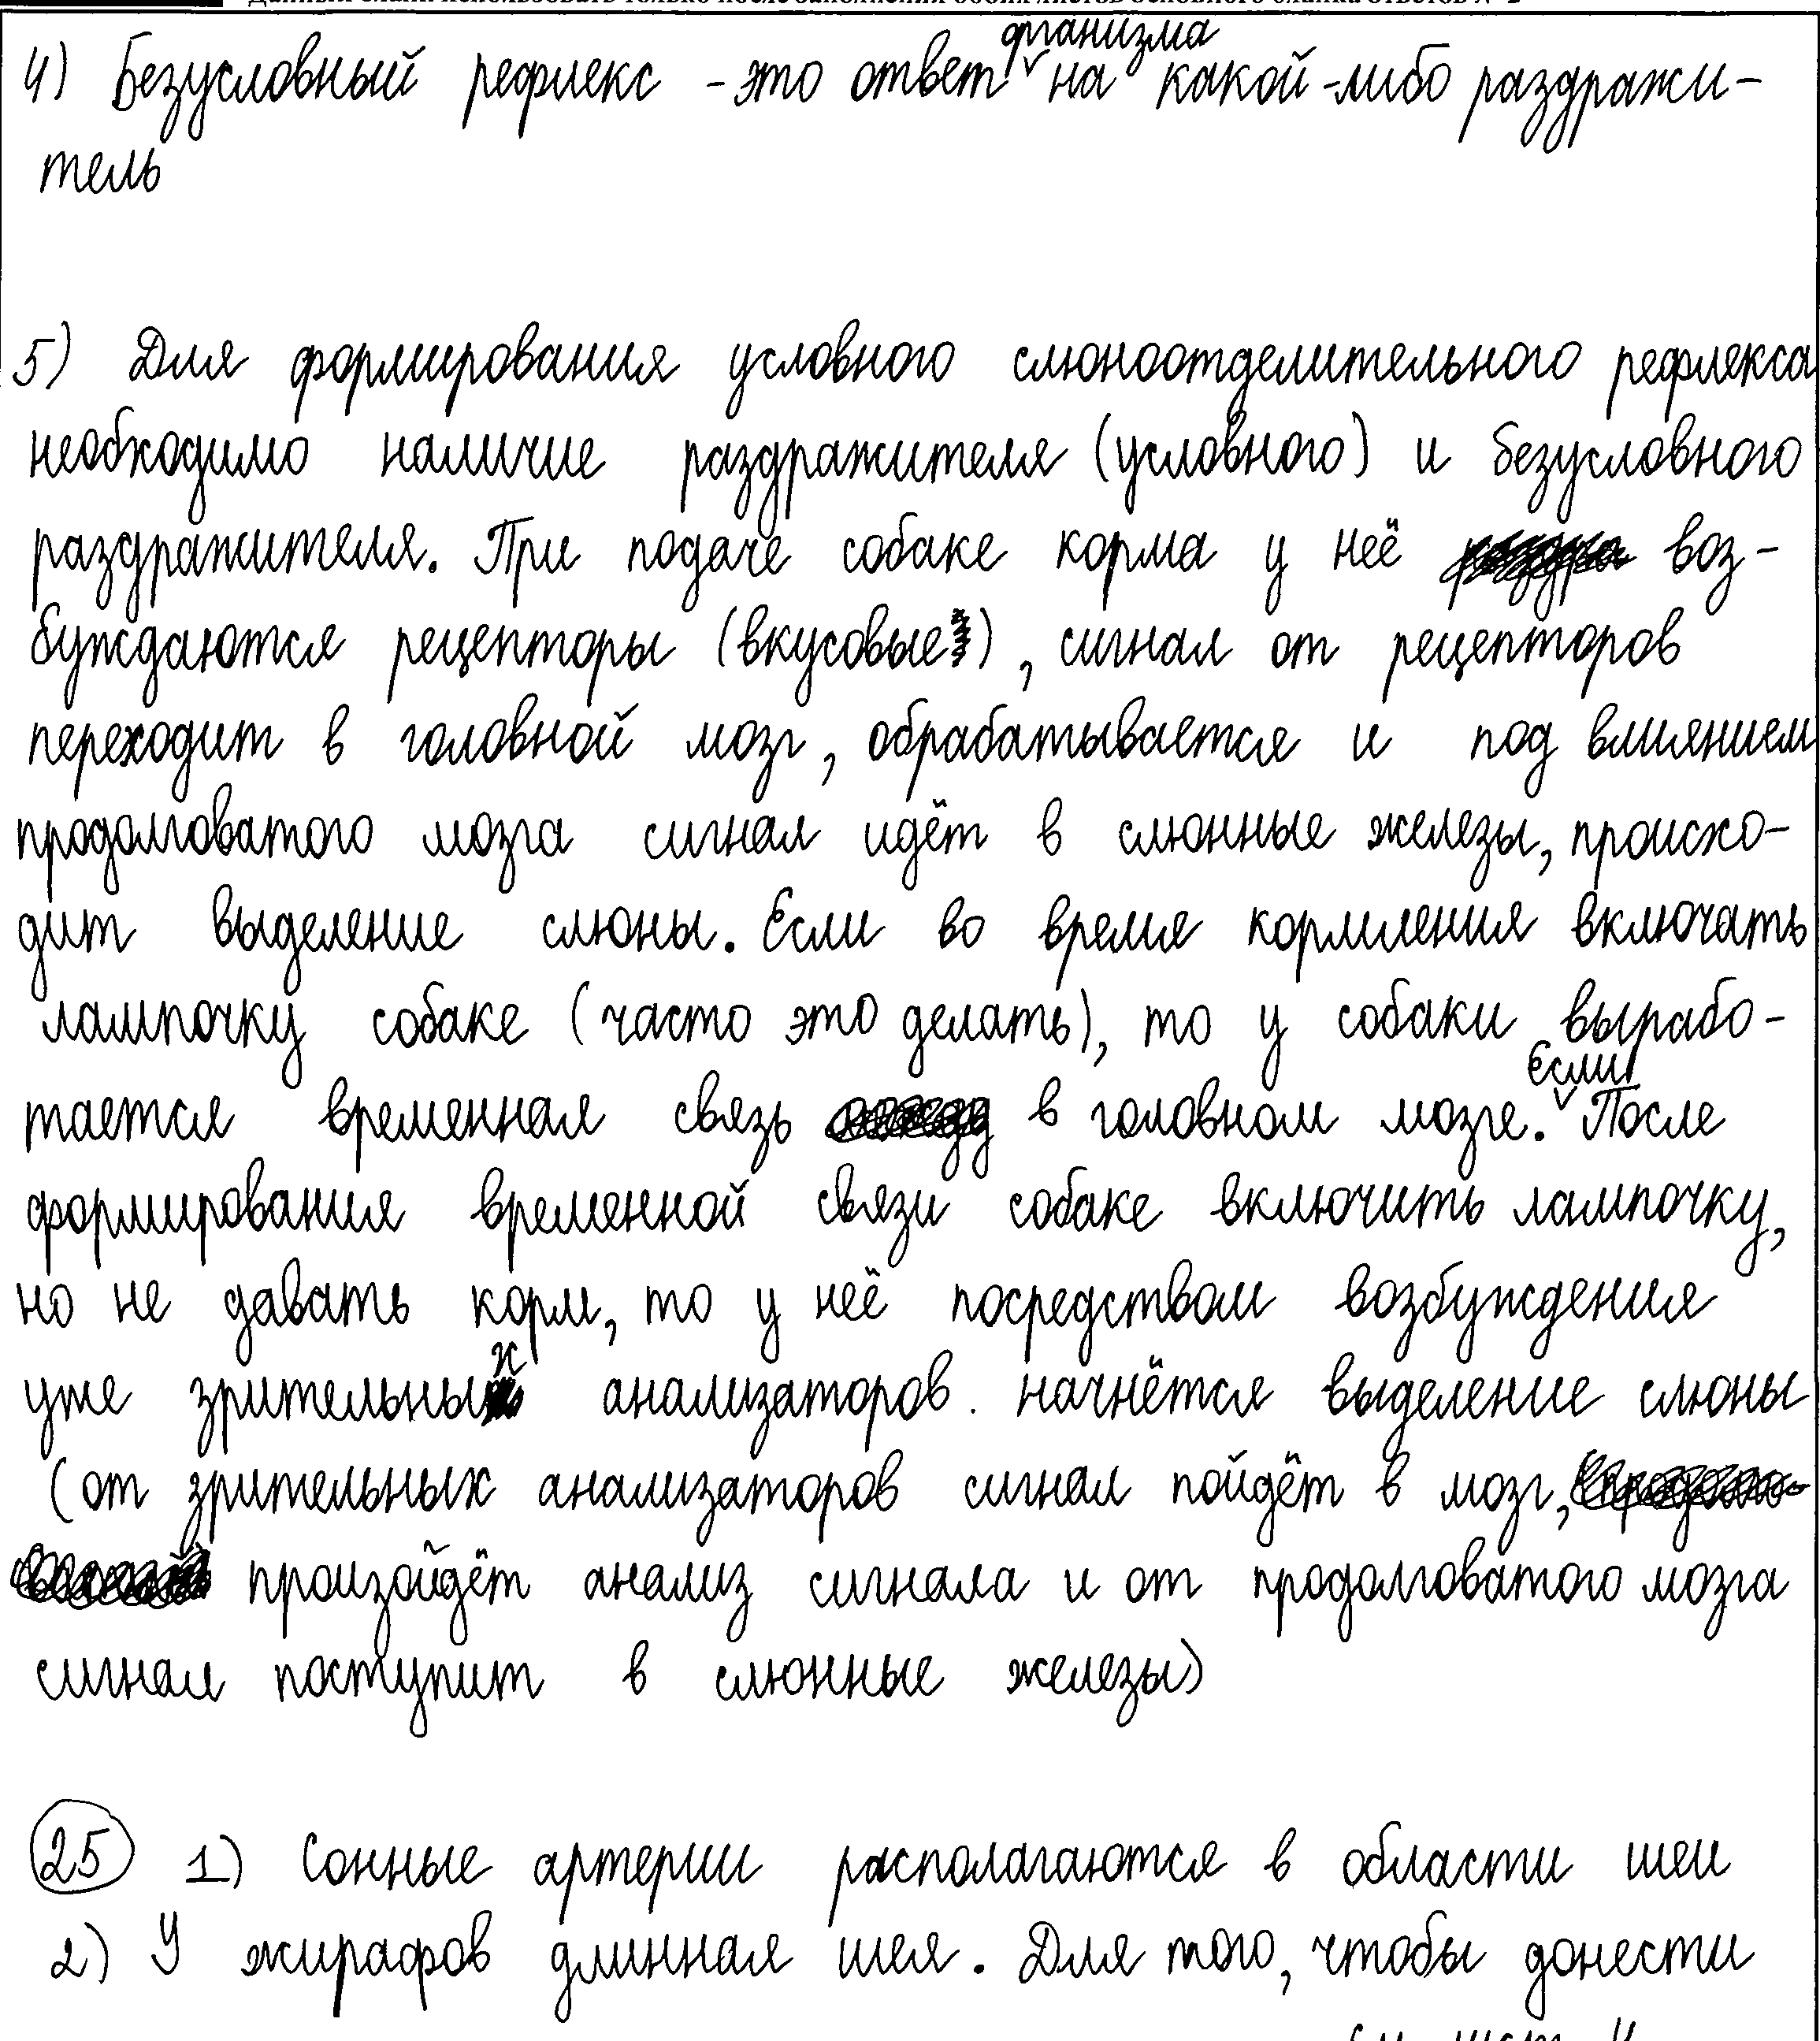 4) Безусловный рефлекс - это ответ организма на какой-либо раздражи-
тель
5) Для формирования условного слюноотделительного рефлекса
необходимо наличие раздражителя (условного) и безусловного
раздражителя. При подаче собаке корма у неё воз-
буждаются рецепторы (вкусовые), сигнал от рецепторов
переходит в головной мозг, обрабатывается и под влиянием
продолговатого мозга сигнал идёт в слюнные железы, происхо-
дит выделение слюны. Если во время кормления включать
лампочку собаке (часто это делать), то у собаки вырабо-
тается временная связь в головном мозге. Если После
формирования временной связи собаке включить лампочку,
но не давать корм, то у неё посредством возбуждения
уже зрительных анализаторов. начнётся выделение слюны
(от зрительных анализаторов сигнал пойдёт в мозг,
произойдёт анализ сигнала и от продолговатого мозга
сигнал поступит в слюнные железы)
25 1) Сонные артерии располагаются в области шеи
2) У жирафов длинная шея. Для того, чтобы донести